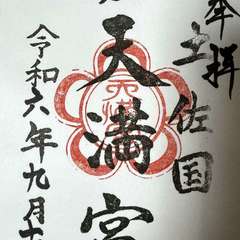 奉拝
土佐国
天満宮
令和六年九月十